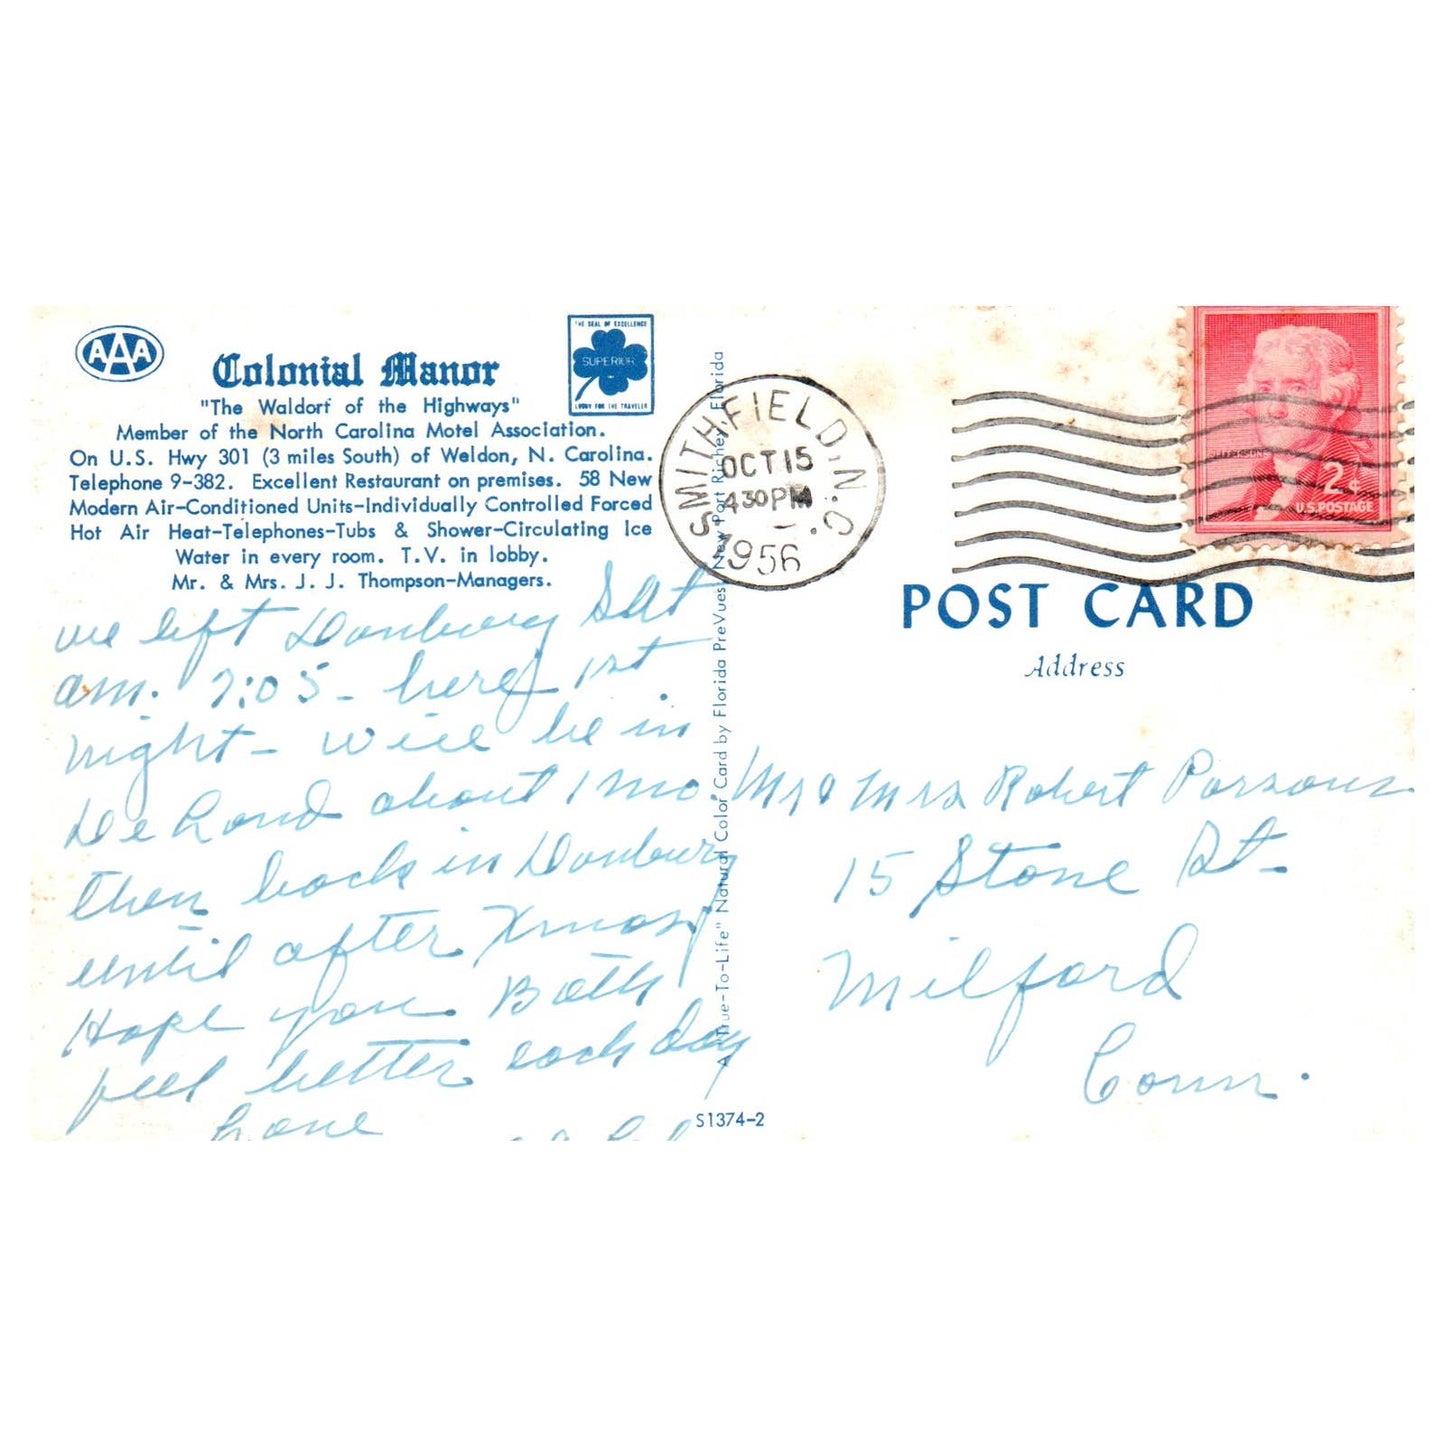 AAA
Colonial Manor
"The Waldorf of the Highways"
Member of the North Carolina Motel Association.
On U.S. Hwy 301 (3 miles South) of Weldon, N. Carolina.
Telephone 9-382. Excellent Restaurant on premises. 58 New
Modern Air-Conditioned Units-Individually Controlled Forced
Hot Air Heat-Telephones-Tubs & Shower-Circulating Ice
Water in every room. T.V. in lobby.
Mr. & Mrs. J. J. Thompson-Managers.
THE SEAL OF EXCELLENCE
SUPERIOR
LOOK FOR THE TRAVELER
we left Danbury Sat
am. 7:05 - here 1st
night - will be in
DeLand about 1 mo.
then back in Danbury
until after Xmas,
Hope you Both
feel better each day
Love
A "True-To-Life" Natural Color Card by Florida PreVues, New Port Richey, Florida
S1374-2
SMITHFIELD, N.C.
OCT 15
4 30 PM
1956
JEFFERSON
2¢
U.S. POSTAGE
POST CARD
Address
Mr & Mrs Robert Parsons
15 Stone St-
Milford
Conn.